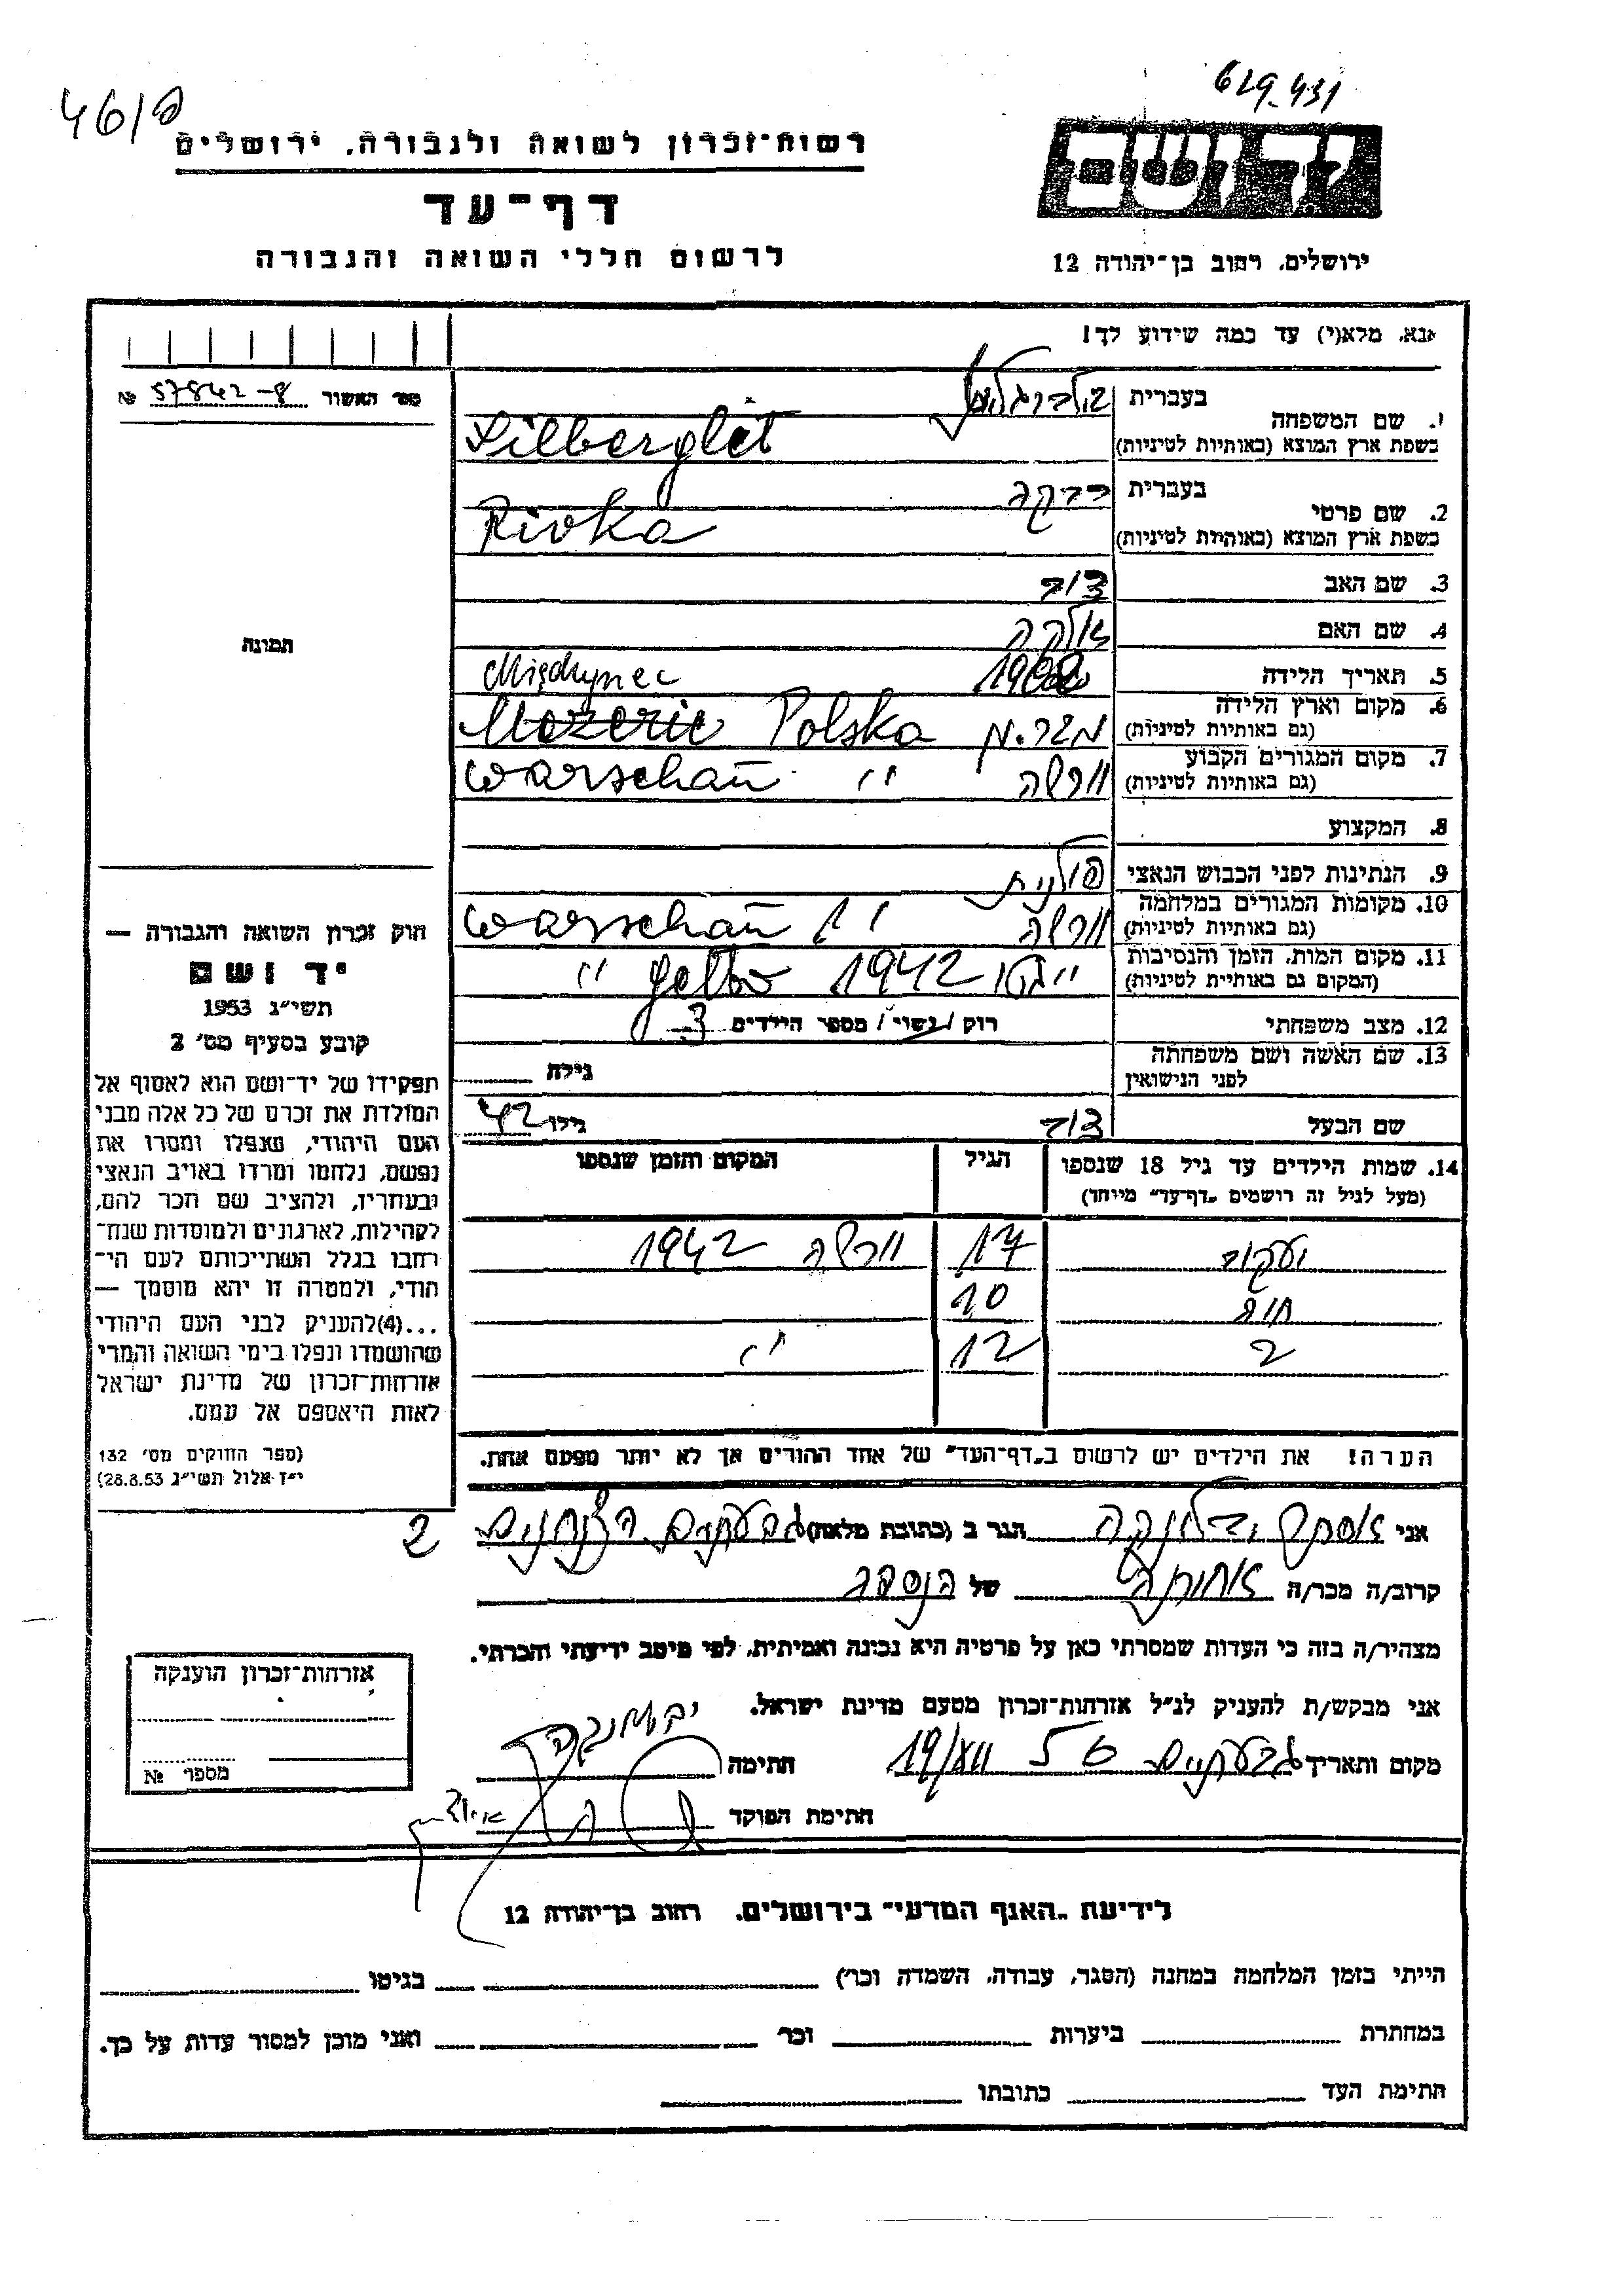 619-431
46/פ
ידושם
רשות-זכרון לשואה ולגבורה, ירושלים
דף-עד
לרשום חללי השואה והגבורה
ירושלים, רחוב בן-יהודה 12
אנא, מלא(י) עד כמה שידוע לך!
מס' האשור № 57842-8
תמונה
1. שם המשפחה
בעברית זילברגליט
בשפת ארץ המוצא (באותיות לטיניות) Silberglet
2. שם פרטי
בעברית רבקה
בשפת ארץ המוצא (באותיות לטיניות) Rivka
3. שם האב דוד
4. שם האם
5. תאריך הלידה
Międzyrzec
6. מקום וארץ הלידה
(גם באותיות לטיניות) Mezeric Polska
7. מקום המגורים הקבוע ורשה
(גם באותיות לטיניות) " Warschau
8. המקצוע
9. הנתינות לפני הכבוש הנאצי פולנית
10. מקומות המגורים במלחמה ורשה
(גם באותיות לטיניות) " Warschau
11. מקום המות, הזמן והנסיבות
(המקום גם באותיית לטיניות) גטו 1942 getto "
12. מצב משפחתי רוק / נשוי / מספר הילדים 3
13. שם האשה ושם משפחתה
לפני הנישואין
גילה
שם הבעל דוד גילו 42
14. שמות הילדים עד גיל 18 שנספו
(מעל לגיל זה רושמים "דף-עד" מייחד)
הגיל
המקום והזמן שנספו
יעקב 17 ורשה 1942
חוה 10
2 12 "
הערה! את הילדים יש לרשום ב"דף-העד" של אחד ההורים אך לא יותר מפעם אחת.
חוק זכרון השואה והגבורה —
יד ושם
תשי"ג 1953
קובע בסעיף מס' 2
תפקידו של יד-ושם הוא לאסוף אל
המולדת את זכרם של כל אלה מבני
העם היהודי, שנפלו ומסרו את
נפשם, נלחמו ומרדו באויב הנאצי
ובעוזריו, ולהציב שם וזכר להם,
לקהילות, לארגונים ולמוסדות שנח-
רבו בגלל השתייכותם לעם הי-
הודי, ולמטרה זו יהא מוסמך —
...(4) להעניק לבני העם היהודי
שהושמדו ונפלו בימי השואה והמרי
אזרחות-זכרון של מדינת ישראל
לאות היאספם אל עמם.
(ספר החוקים מס' 132
י"ז אלול תשי"ג 28.8.53)
אני אסתר הגר ב (כתובת מלאה) גבעתיים 2
קרוב/ה מכר/ה אחותה של הנספה
מצהיר/ה בזה כי העדות שמסרתי כאן על פרטיה היא נכונה ואמיתית, לפי מיטב ידיעתי והכרתי.
אני מבקש/ת להעניק לנ"ל אזרחות-זכרון מטעם מדינת ישראל.
מקום ותאריך גבעתיים
חתימה
חתימת הפוקד
אזרחות-זכרון הוענקה
מספר №
לידיעת "האגף המדעי" בירושלים, רחוב בן-יהודה 12
הייתי בזמן המלחמה במחנה (הסגר, עבודה, השמדה וכו') בגיטו
במחתרת ביערות וכו' ואני מוכן למסור עדות על כך.
חתימת העד כתובתו